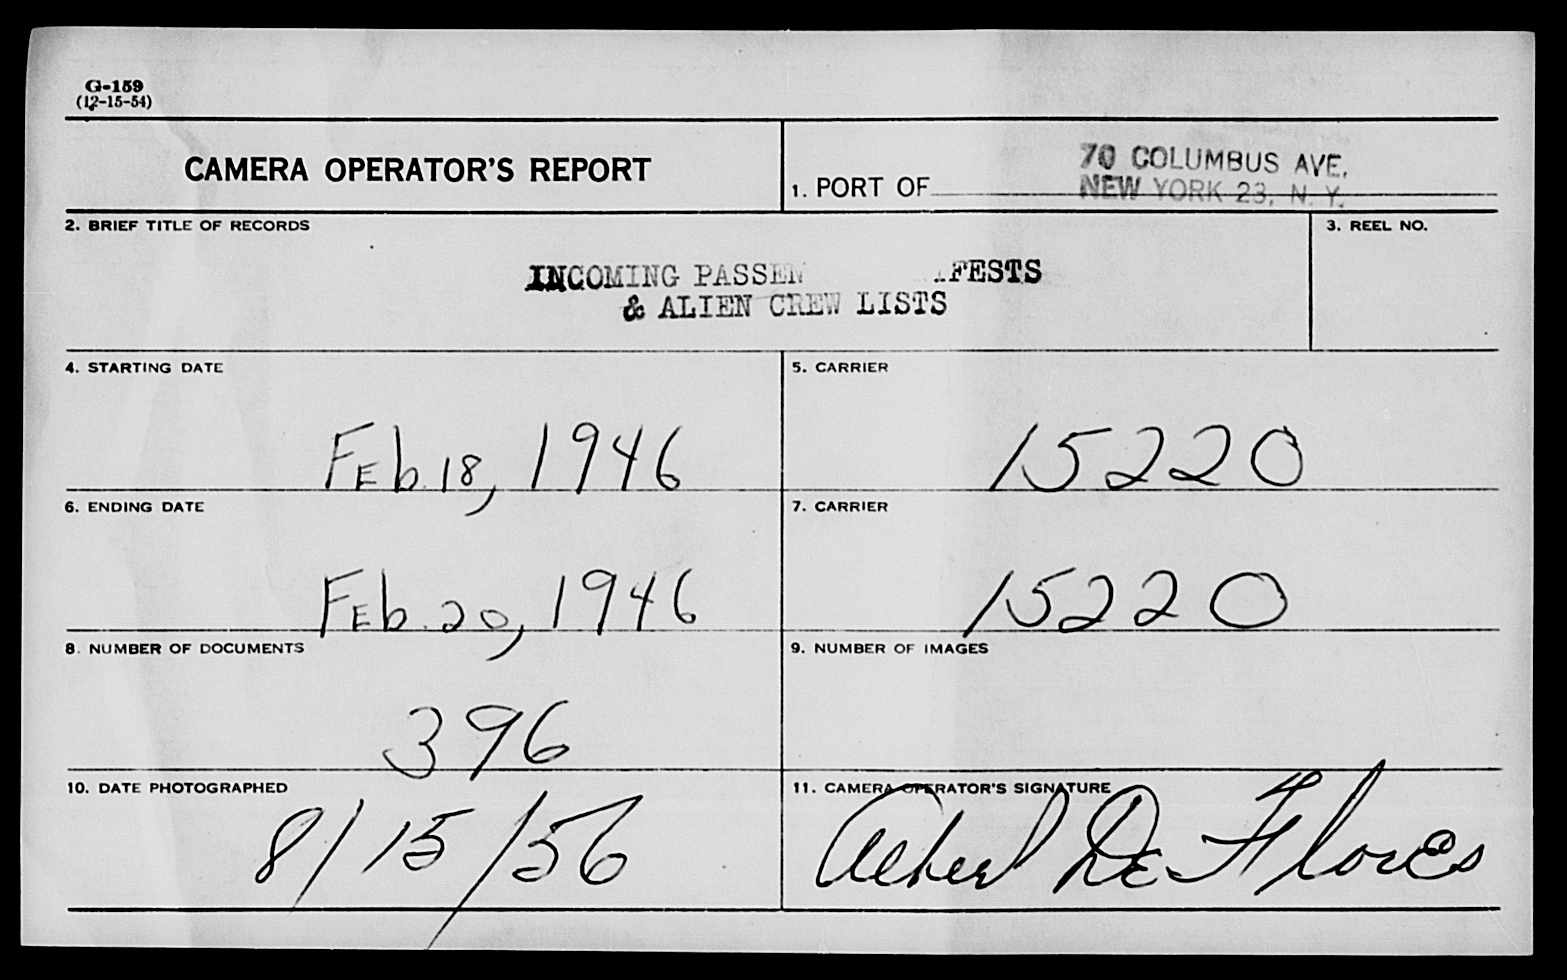 G-159
(12-15-54)
CAMERA OPERATOR'S REPORT
1. PORT OF
70 COLUMBUS AVE.
NEW YORK 23, N. Y.
2. BRIEF TITLE OF RECORDS
3. REEL NO.
INCOMING PASSEN FESTS
& ALIEN CREW LISTS
4. STARTING DATE
5. CARRIER
Feb. 18, 1946
15220
6. ENDING DATE
7. CARRIER
Feb. 20, 1946
15220
8. NUMBER OF DOCUMENTS
9. NUMBER OF IMAGES
396
10. DATE PHOTOGRAPHED
11. CAMERA OPERATOR'S SIGNATURE
8/15/56
De Flores